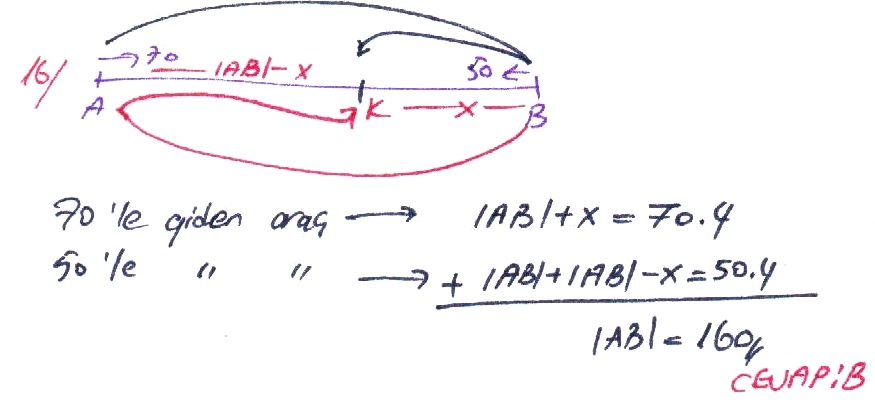 16/
→ 70 |AB|-x 50 ←
A K x B
70 'le giden araç → |AB|+x = 70.4
50 'le " " → + |AB|+|AB|-x=50.4
|AB| = 160
CEVAP:B